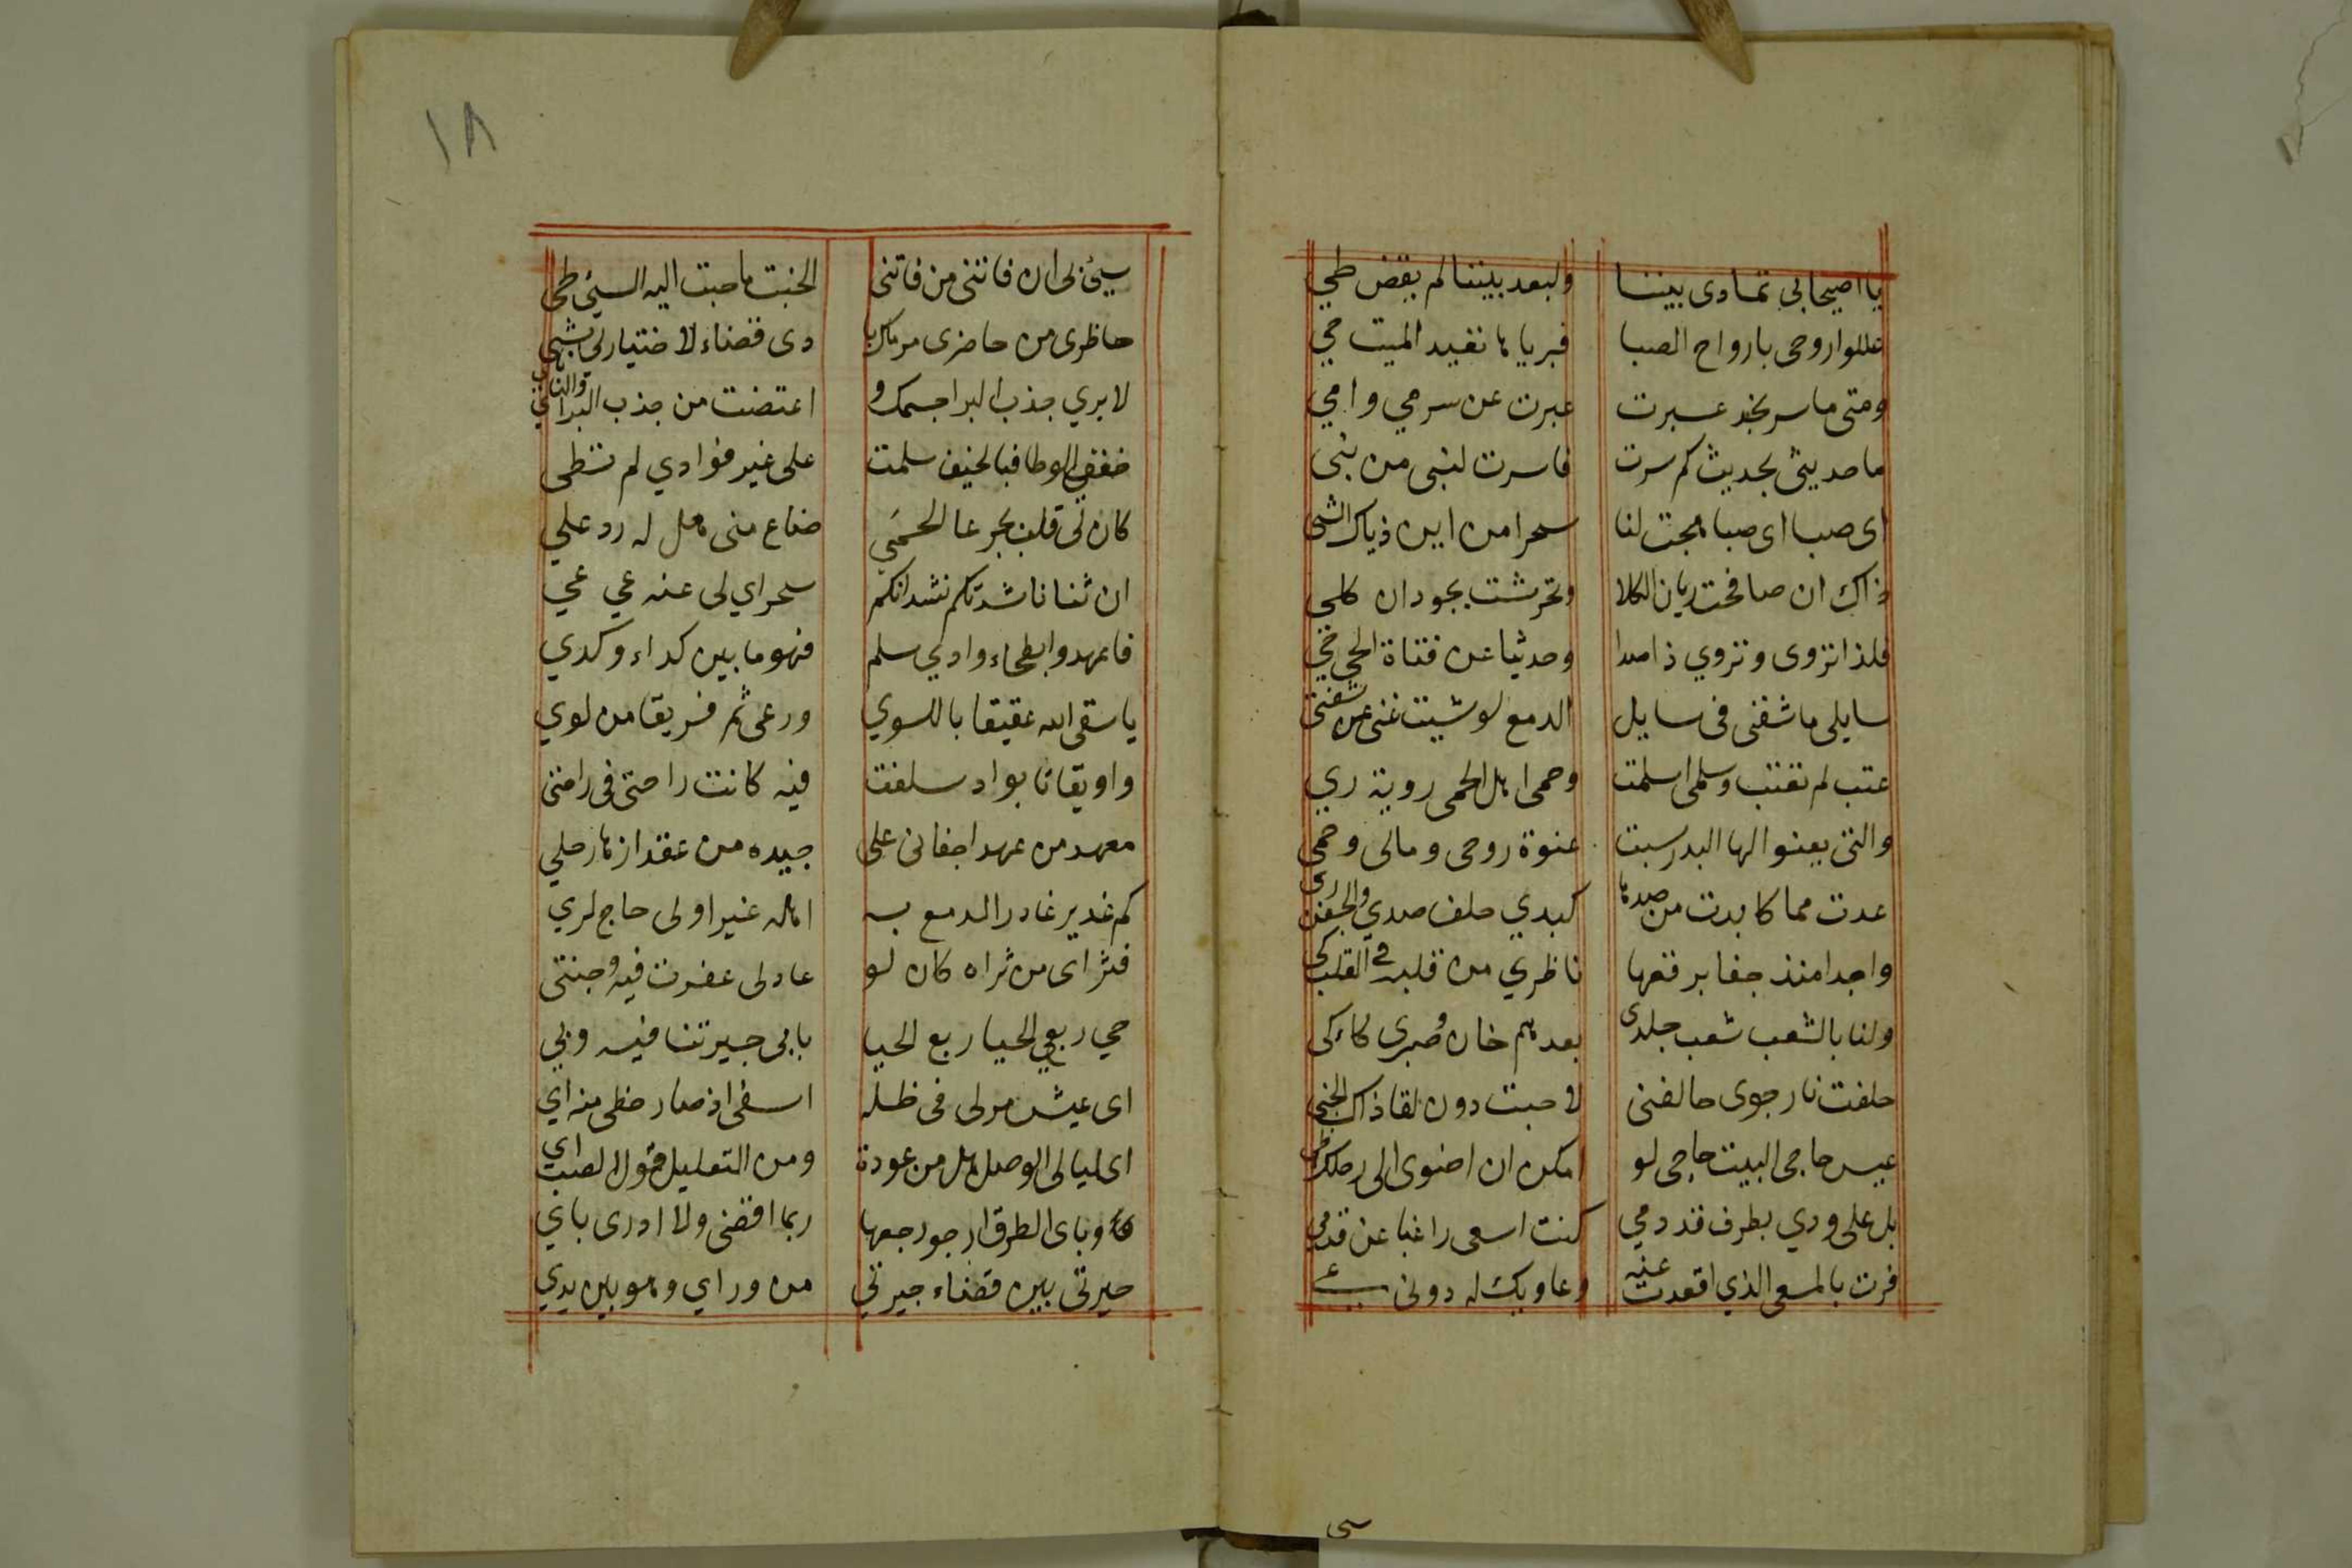 يا اصيحابي تمادى بيننا ولبعد بيننا لم يقض طي
عللوا روحى بارواح الصبا فبرياها نفيد الميت حي
ومتى ما سر نجد عبرت عبرت عن سر مي وامي
ما حديثى بحديث كم سرت فاسرت لنبى من نبى
اى صبا اى صبا هجت لنا سحرا من اين ذياك الشى
ذاك ان صافحت ريان الكلا وتحرشت بجودان كلى
فلذا تروى وتروي ذا صدا وحديثا عن فتاة الحي حي
سايلى ما شفنى فى سايل الدمع لو شيت غنى عن شفتى
عتب لم تعتب وسلمى اسلمت وحمى اهل الحمى روية ري
والتى يعنوا لها البدر سبت عنوة روحى ومالى وحمى
عدت مما كابدت من صدها كبدي حلف صدي والجفن رى
واجدا منذ جفا برقعها ناظري من قلبه فى القلب كى
ولنا بالشعب شعب جلدى بعدهم خان وصبرى كاء كى
حلفت نار جوى حالفنى لا خبت دون لقا ذاك الخبى
عيس حاجى البيت حاجى لو امكن ان اضوى الى رحلك طى
بل على ودي بطرف قد دمي كنت اسعى راغبا عن قدمي
فزت بالمسعى الذي اقعدت عنه وعاويك له دونى عي
سى
١٨
سيئ بى ان فاتنى من فاتنى الخبت ما حبت اليه السئ طى
حاظرى من حاضرى مرماك با دى قضاء لا اختيار لى بشى
لا بري جذب البرا جسمك و اعتضت من جذب البرا والناي ني
خففي الوطا فبالخيف سلمت على غير فؤادي لم تطى
كان لى قلب بجرعا الحمي ضاع منى هل له رد علي
ان ثنا ناشدتكم نشدانكم سحراي لى عنه عي عي
فاعهدوا بطحاء وادي سلم فهو ما بين كداء وكدي
يا سقى الله عقيقا باللوي ورعى ثم فريقا من لوي
واويقاتا بواد سلفت فيه كانت راحتى فى راحتى
معهد من عهد اجفانى على جيده من عقد ازهار حلي
كم غدير غادر الدمع به اهله غير اولى حاج لري
فثراى من ثراه كان لو عاد لى عفرت فيه وجنتى
حي ربعي الحيا ربع الحيا بابى جيرتنا فيه وبي
اى عيش مر لى فى ظله اسفى اذ صار حظى منه اي
اى ليالى الوصل هل من عودة ومن التعليل قول الصب اي
وباى الطرق ارجو رجعها ربما اقضى ولا ادرى باي
حيرتى بين قضاء جيرتي من وراي وهو بين يدي